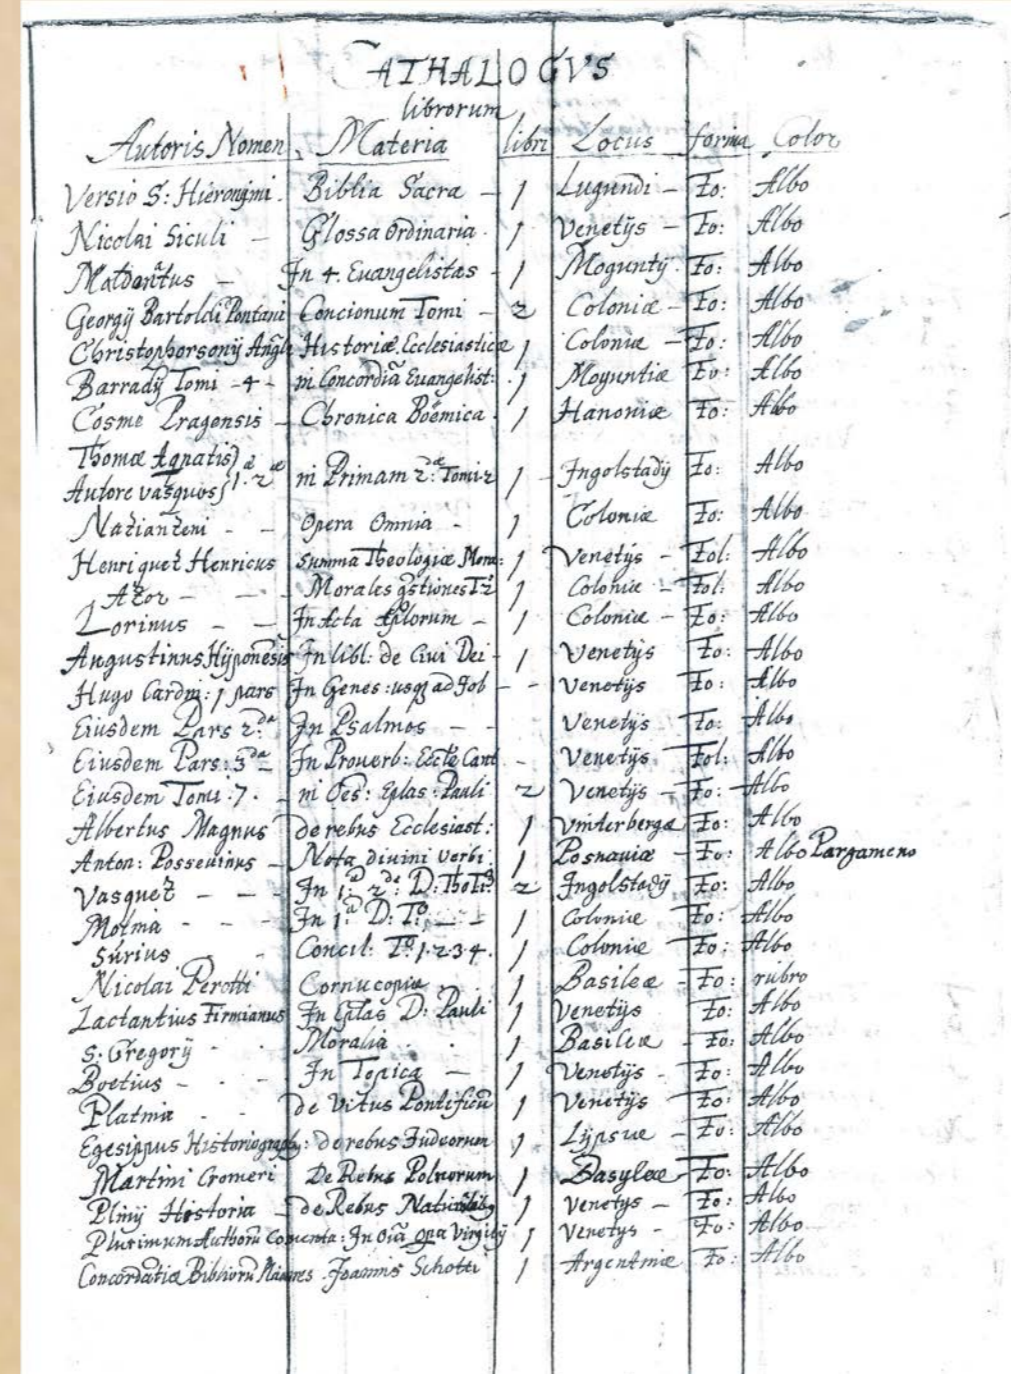 CATHALOGVS
librorum
Autoris Nomen Materia libri Locus forma Color
Versio S: Hieronymi. Biblia Sacra - 1 Lugundi - Fo: Albo
Nicolai Siculi - Glossa Ordinaria. 1 Venetijs - Fo: Albo
- In 4. Euangelistas - 1 Moguntij. Fo: Albo
Georgij Bartoldi Pontani Concionum Tomi - 2 Coloniæ - Fo: Albo
Christophorsonij Angli Historiæ Ecclesiasticæ 1 Coloniæ - Fo: Albo
Barradij Tomi - 4 - in Concordiã Euangelist: . 1 Moguntiæ Fo: Albo
Cosme Pragensis - Chronica Boëmica. 1 Hanoniæ Fo: Albo
Thomæ Aqnatis
Autore vasquos 1. 2æ in Primam 2dæ: Tomi 2 1 - Ingolstadij Fo: Albo
Nazianzeni - - Opera Omnia - 1 Coloniæ Fo: Albo
Henriquez Henricus Summa Theologiæ Mora: 1 Venetijs - Fol: Albo
Azor - - - Morales 1 Coloniæ - Fol: Albo
Lorinus - - In Acta Aplorum - 1 Coloniæ - Fo: Albo
Augustinus Hyponēsis In libl: de Ciui Dei - 1 Venetijs Fo: Albo
Hugo Cardin: 1 pars In Genes: usq ad Job - - Venetijs Fo: Albo
Eiusdem Pars 2da: In Psalmos - - Venetijs Fo: Albo
Eiusdem Pars: 3da - In Prouerb: Eccle Cant - Venetijs Fol: Albo
Eiusdem Tomi: 7. - in Oēs: Eplas: Pauli 2 Venetijs - Fo: - Albo
Albertus Magnus de rebus Ecclesiast: 1 Vinterbergæ Fo: Albo
Anton: Posseuinus - Nota diuini verbi 1 Posnaniæ - Fo: Albo Pargameno
Vasquez - - - In 1a: 2dæ: D: 2 Ingolstadij Fo: Albo
Molina - - - In 1a D: To: - - 1 Coloniæ Fo: Albo
Surius - - Concil: To: 1.2.3.4. 1 Coloniæ - Fo: Albo
Nicolai Perotti Cornucopiæ . . 1 Basileæ - Fo: rubro
Lactantius Firmianus In Eplas D: Pauli 1 Venetijs Fo: Albo
S: Gregorij - - Moralia . . 1 Basileæ - Fo: Albo
Boetius - - - In Topica - 1 Venetijs - Fo: Albo
Platina . . de Vitus Pontificũ 1 Venetijs Fo: Albo
Egesippus Historiograph: de rebus Iudeorum 1 Lypsiæ - Fo: Albo
Martini Cromeri De Rebus Polnorum 1 Basyleæ - Fo: Albo
Plinij Historia - de Rebus 1 Venetys - Fo: Albo
Plurimum Authorũ Comenta: In oiã opa Virgilij 1 Venetys - Fo: Albo
Concordãtiæ Bibliorũ Maiores. Joannis Schotti 1 Argentinæ Fo: Albo